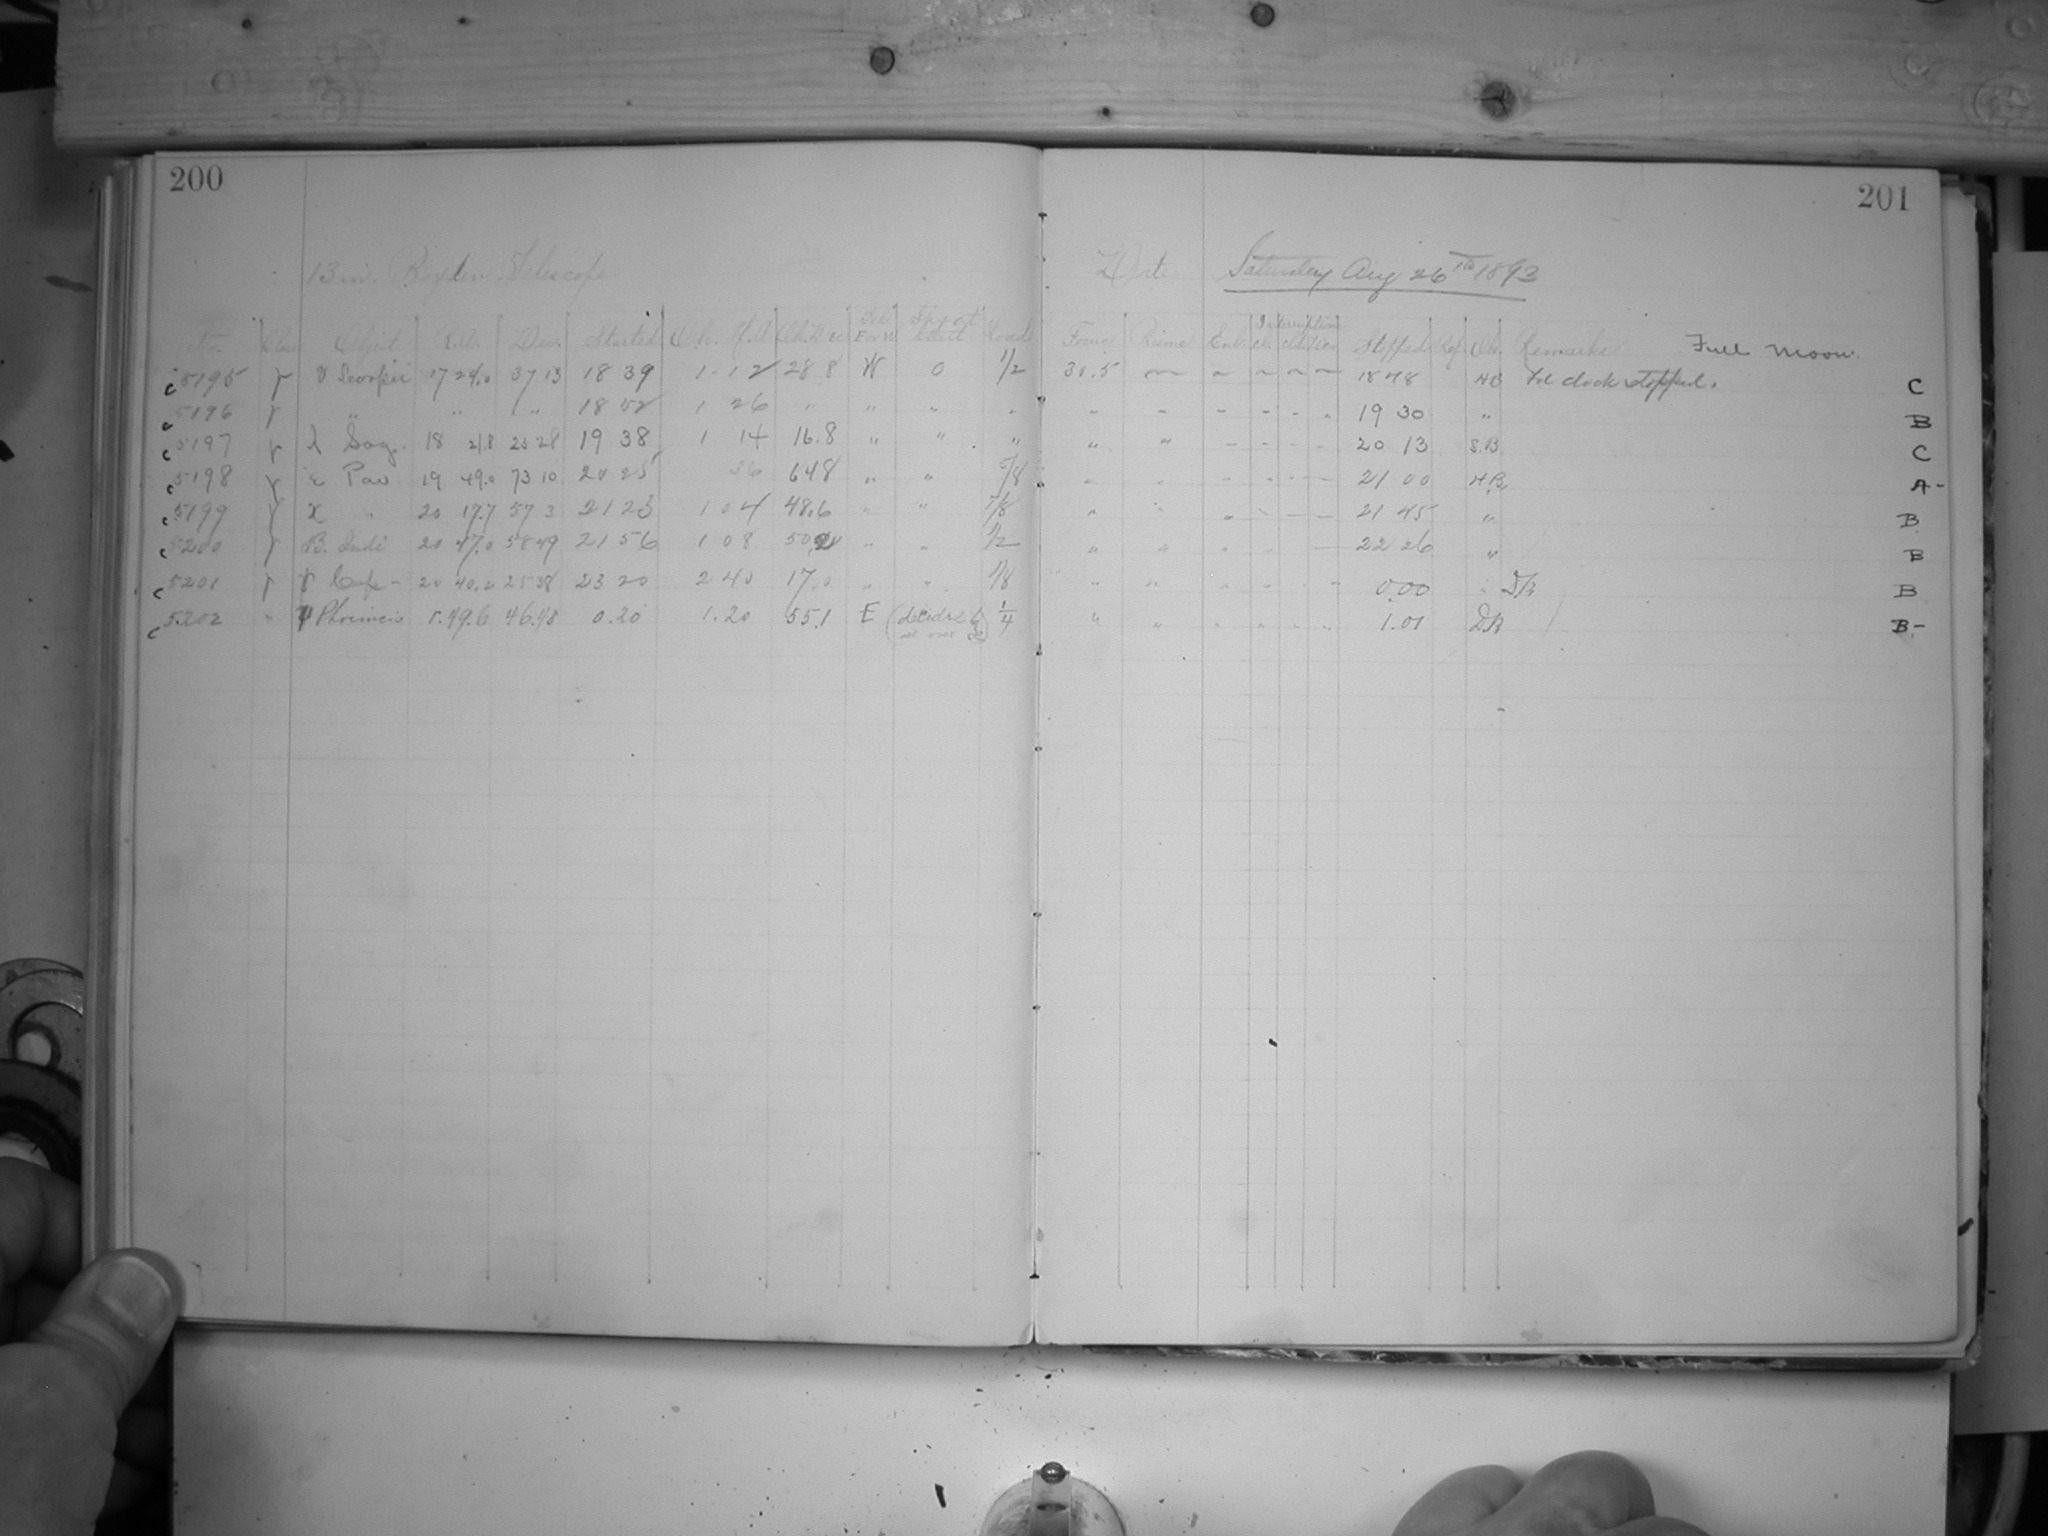 200
201
13 in. Boyden Telescope
Date Saturday Aug 26th 1893
No. Class Object R.A. Dec. Started Obs. H.A. Tel. E or W Load Focus Prisms Interruptions Stopped Ref. Ob. Remarks Full Moon.
c 5195 γ υ Scorpii 17 24.0 37 13 18 39 1 12 28 8 W 0 1/2 30.5 18 48 HB clock stopped. C
c 5196 γ " " " 18 52 1 26 " " " " " - 19 30 " B
c 5197 γ λ Sag. 18 21.8 25 28 19 38 1 14 16.8 " " " " " 20 13 S.B. C
c 5198 γ ε Pav 19 49.0 73 10 20 25 36 64 8 " " 5/8 " 21 00 HB A-
c 5199 γ " 20 17.7 57 3 21 23 1 04 48.6 " " " " 21 45 " B
c 5200 γ B. Indi 20 47.0 58 49 21 56 1 08 " " 1/2 " " 22 26 " B
c 5201 γ Cap- 20 40.2 25 38 23 20 2 40 17.0 " " " " 0.00 B
c 5202 " Phoenicis 1.49.6 46.48 0.20 1.20 55.1 E 1/4 " " 1.01 B-